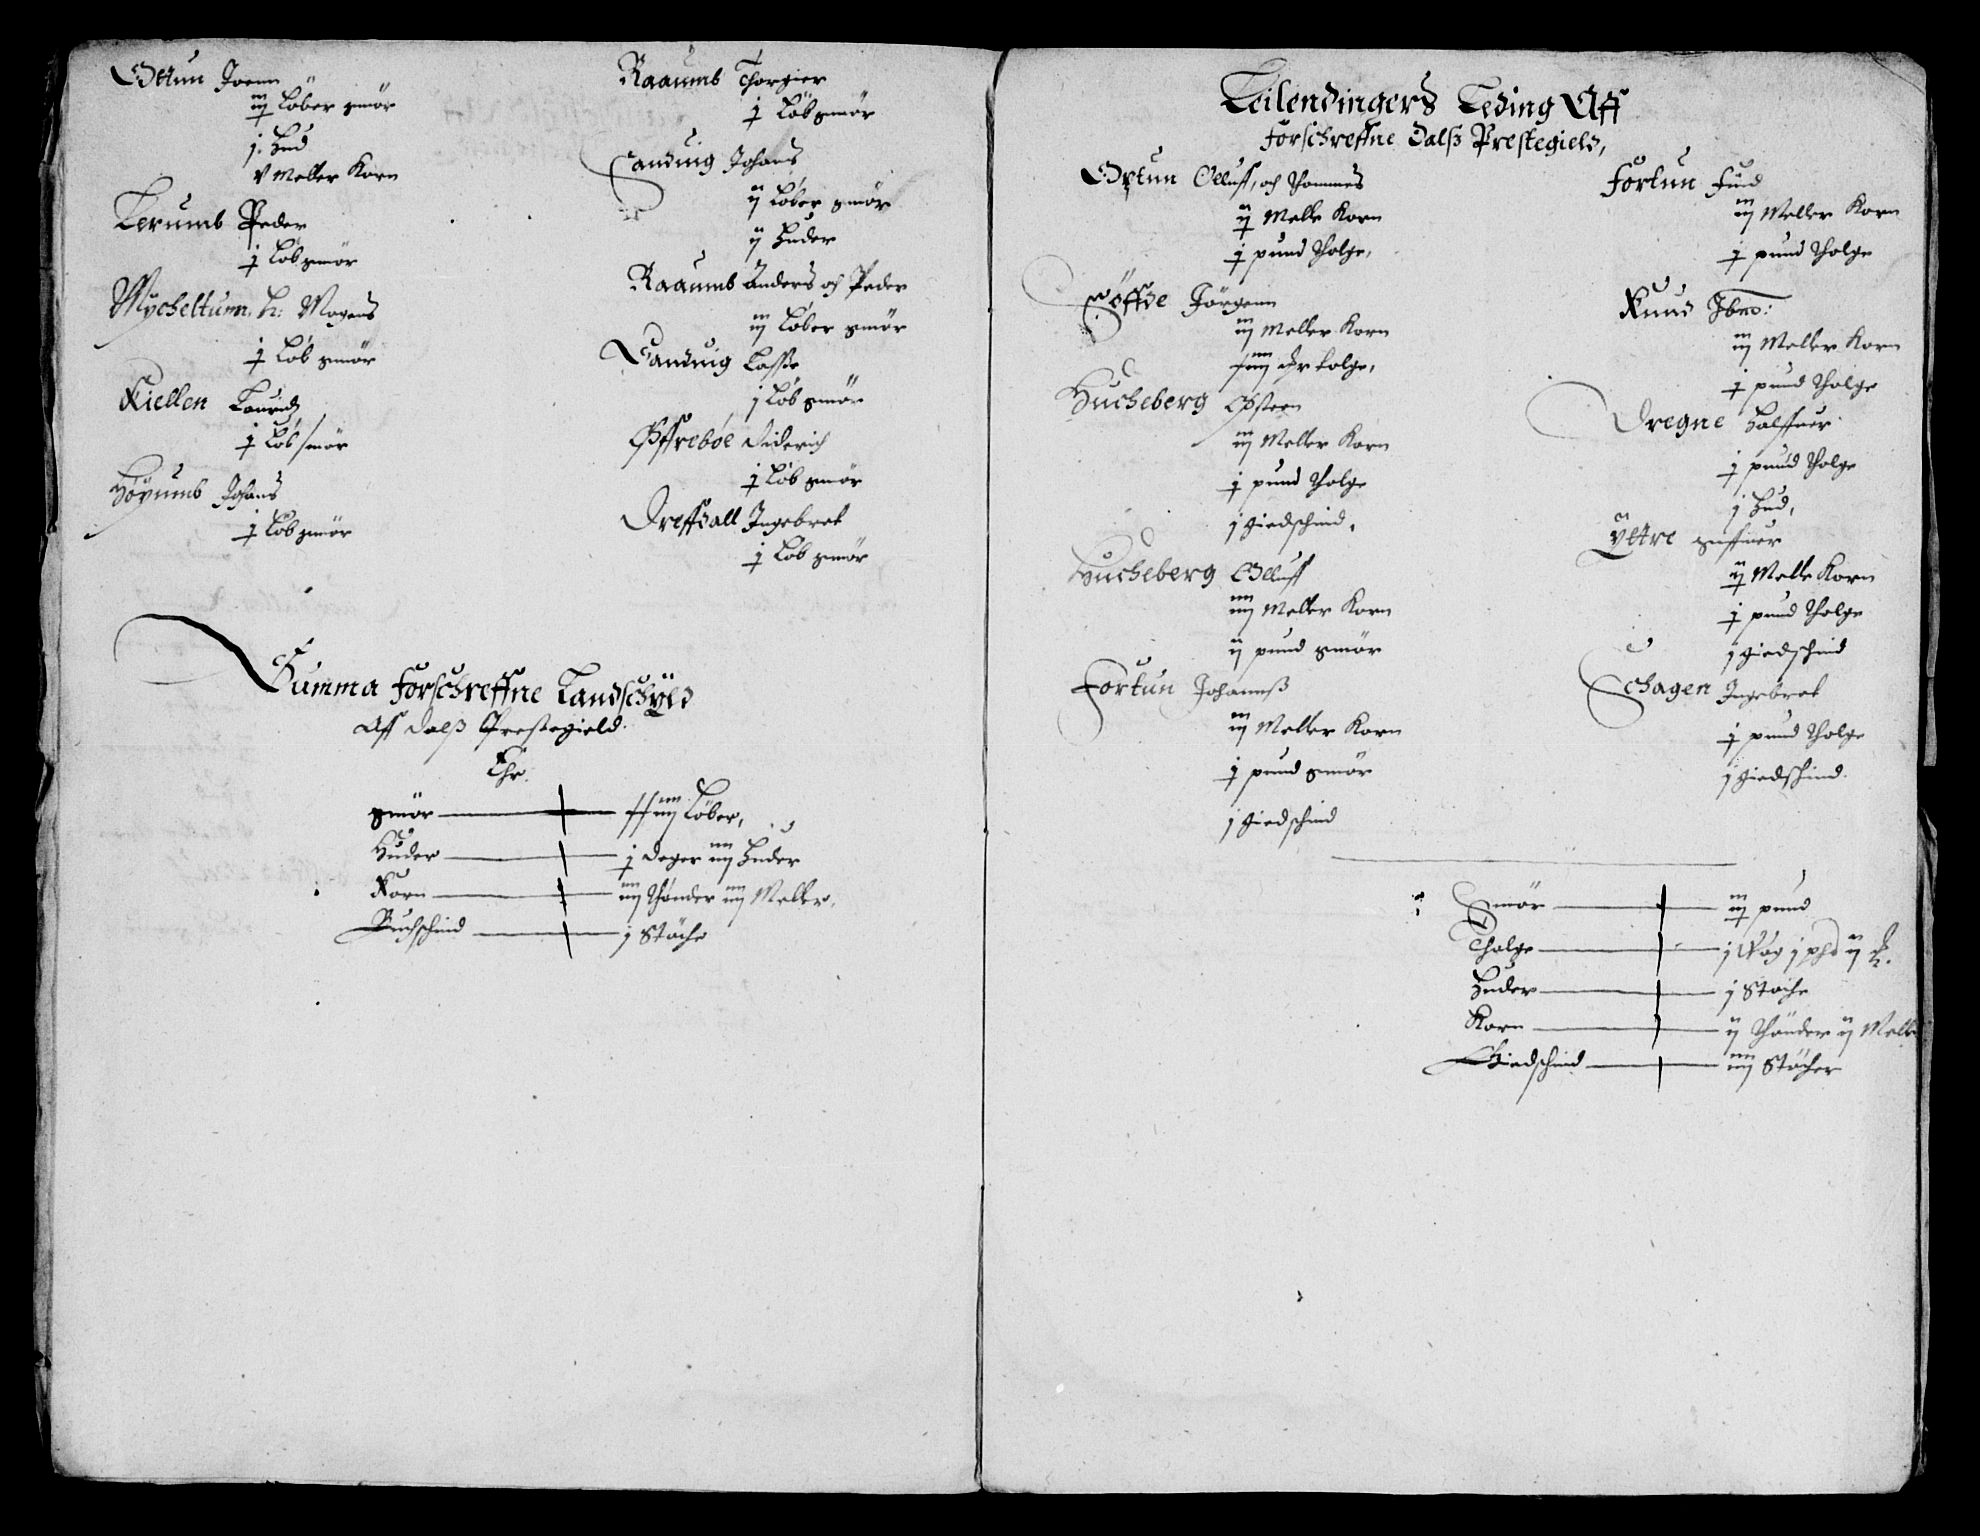 Ottun Joenn
iij Löber smör
j. Hud
v Meller Korn
Lerumb Peder
j Löb smör
Mycheltunn, H: Mogens
j Löb smör
Kiellen Lauridz
j Löb smör
Höyumb Johans
j Löb smör
Raaumb Thorgier
j Löb smör
Sanduig Johans
ij Löber smör
ij Huder
Raaumb Anders och Peder
iij Löber smör
Sanduig Lasse
j Löb smör
Øffreböe Diderich
j Löb smör
Dreffdall Ingebret
j Löb smör
Summa forschreffne Landschyld
Aff Dalß Prestegield.
Ehr.
smör — Löber,
Huder — j deger iiij Huder
Korn — iiij Thönder iiij Meller,
Buchschind — j Stöche
Leilendingers Leding Aff
forschreffne Dalß Prestegield,
Ortun Olluff, och Thommes
ij Melle Korn
j pund Tholge,
Söffde Jörgenn
iij Meller Korn
tolge,
Hucheberg Østeen
iij Meller Korn
j pund Tholge
j giedschind,
Hucheberg Olluff
iiij Meller Korn
ij pund smör
Fortun Johannß
iij Meller Korn
j pund smör
j giedschind
Fortun
iij Meller Korn
j pund Tholge
Knud
iij Meller Korn
j pund Tholge
Dregne Halffuer
j pund Tholge
j Hud,
Yttre
ij Melle Korn
j pund Tholge
j giedschind
Schagen Ingebret
j pund Tholge
j giedschind.
Smör — iij pund
Tholge — j Wog j phd ij
Huder — j Stöche
Korn — ij Thönder ij Melle
Giedschind — iiij Stöcher